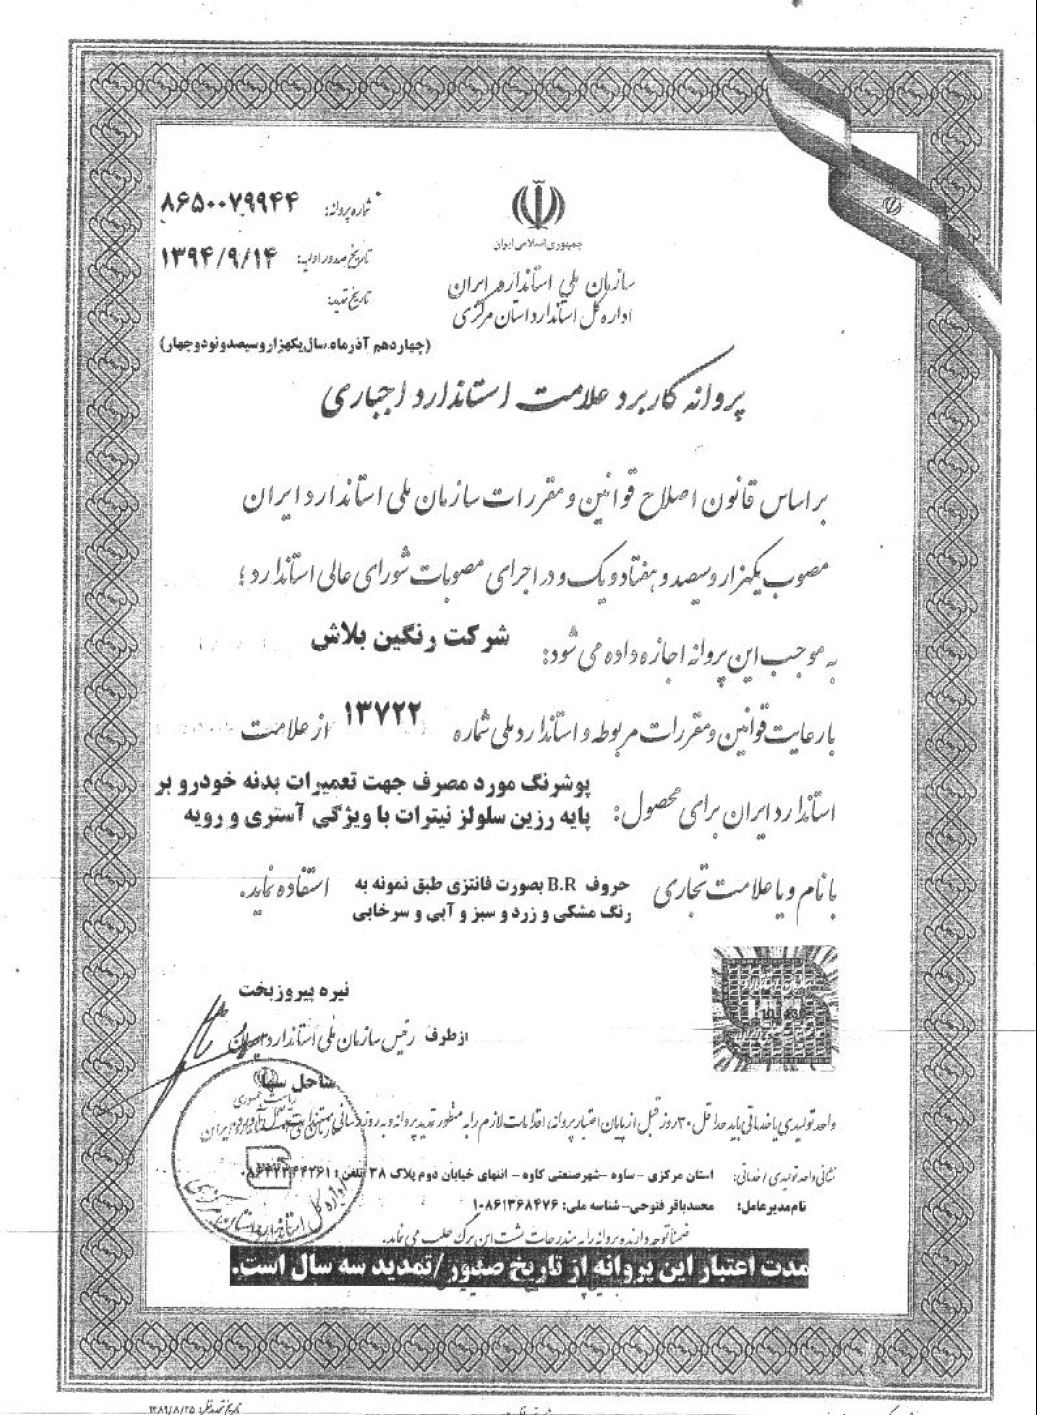 جمهوری اسلامی ایران
سازمان ملی استاندارد ایران
اداره کل استاندارد استان مرکزی
شماره پروانه: ۸۶۵۰۰۷۹۹۴۴
تاریخ صدور اولیه: ۱۳۹۴/۹/۱۴
تاریخ تمدید:
(چهاردهم آذرماه سال یکهزار و سیصد و نود و چهار)
پروانه کاربرد علامت استاندارد اجباری
بر اساس قانون اصلاح قوانین و مقررات سازمان ملی استاندارد ایران
مصوب یکهزار و سیصد و هفتاد و یک و در اجرای مصوبات شورای عالی استاندارد ؛
به موجب این پروانه اجازه داده می شود: شرکت رنگین بلاش
با رعایت قوانین و مقررات مربوطه و استاندارد ملی شماره ۱۳۷۲۲ از علامت
استاندارد ایران برای محصول: پوشرنگ مورد مصرف جهت تعمیرات بدنه خودرو بر
پایه رزین سلولز نیترات با ویژگی آستری و رویه
با نام و یا علامت تجاری حروف B.R بصورت فانتزی طبق نمونه به استفاده نماید.
رنگ مشکی و زرد و سبز و آبی و سرخابی
نیره پیروزبخت
از طرف رئیس سازمان ملی استاندارد ایران
واحد تولیدی یا خدماتی باید حداقل ۳۰ روز قبل از پایان اعتبار پروانه، اقدامات لازم را به منظور تمدید پروانه و به روز رسانی
نشانی واحد تولیدی / خدماتی: استان مرکزی -ساوه -شهرصنعتی کاوه - انتهای خیابان دوم پلاک ۳۸ تلفن:
نام مدیر عامل: محمدباقر فتوحی- شناسه ملی: ۱۰۸۶۱۳۶۸۴۷۶
ضمنا توجه دارنده پروانه را به مندرجات پشت این برگ جلب می نماید.
مدت اعتبار این پروانه از تاریخ صدور /تمدید سه سال است.